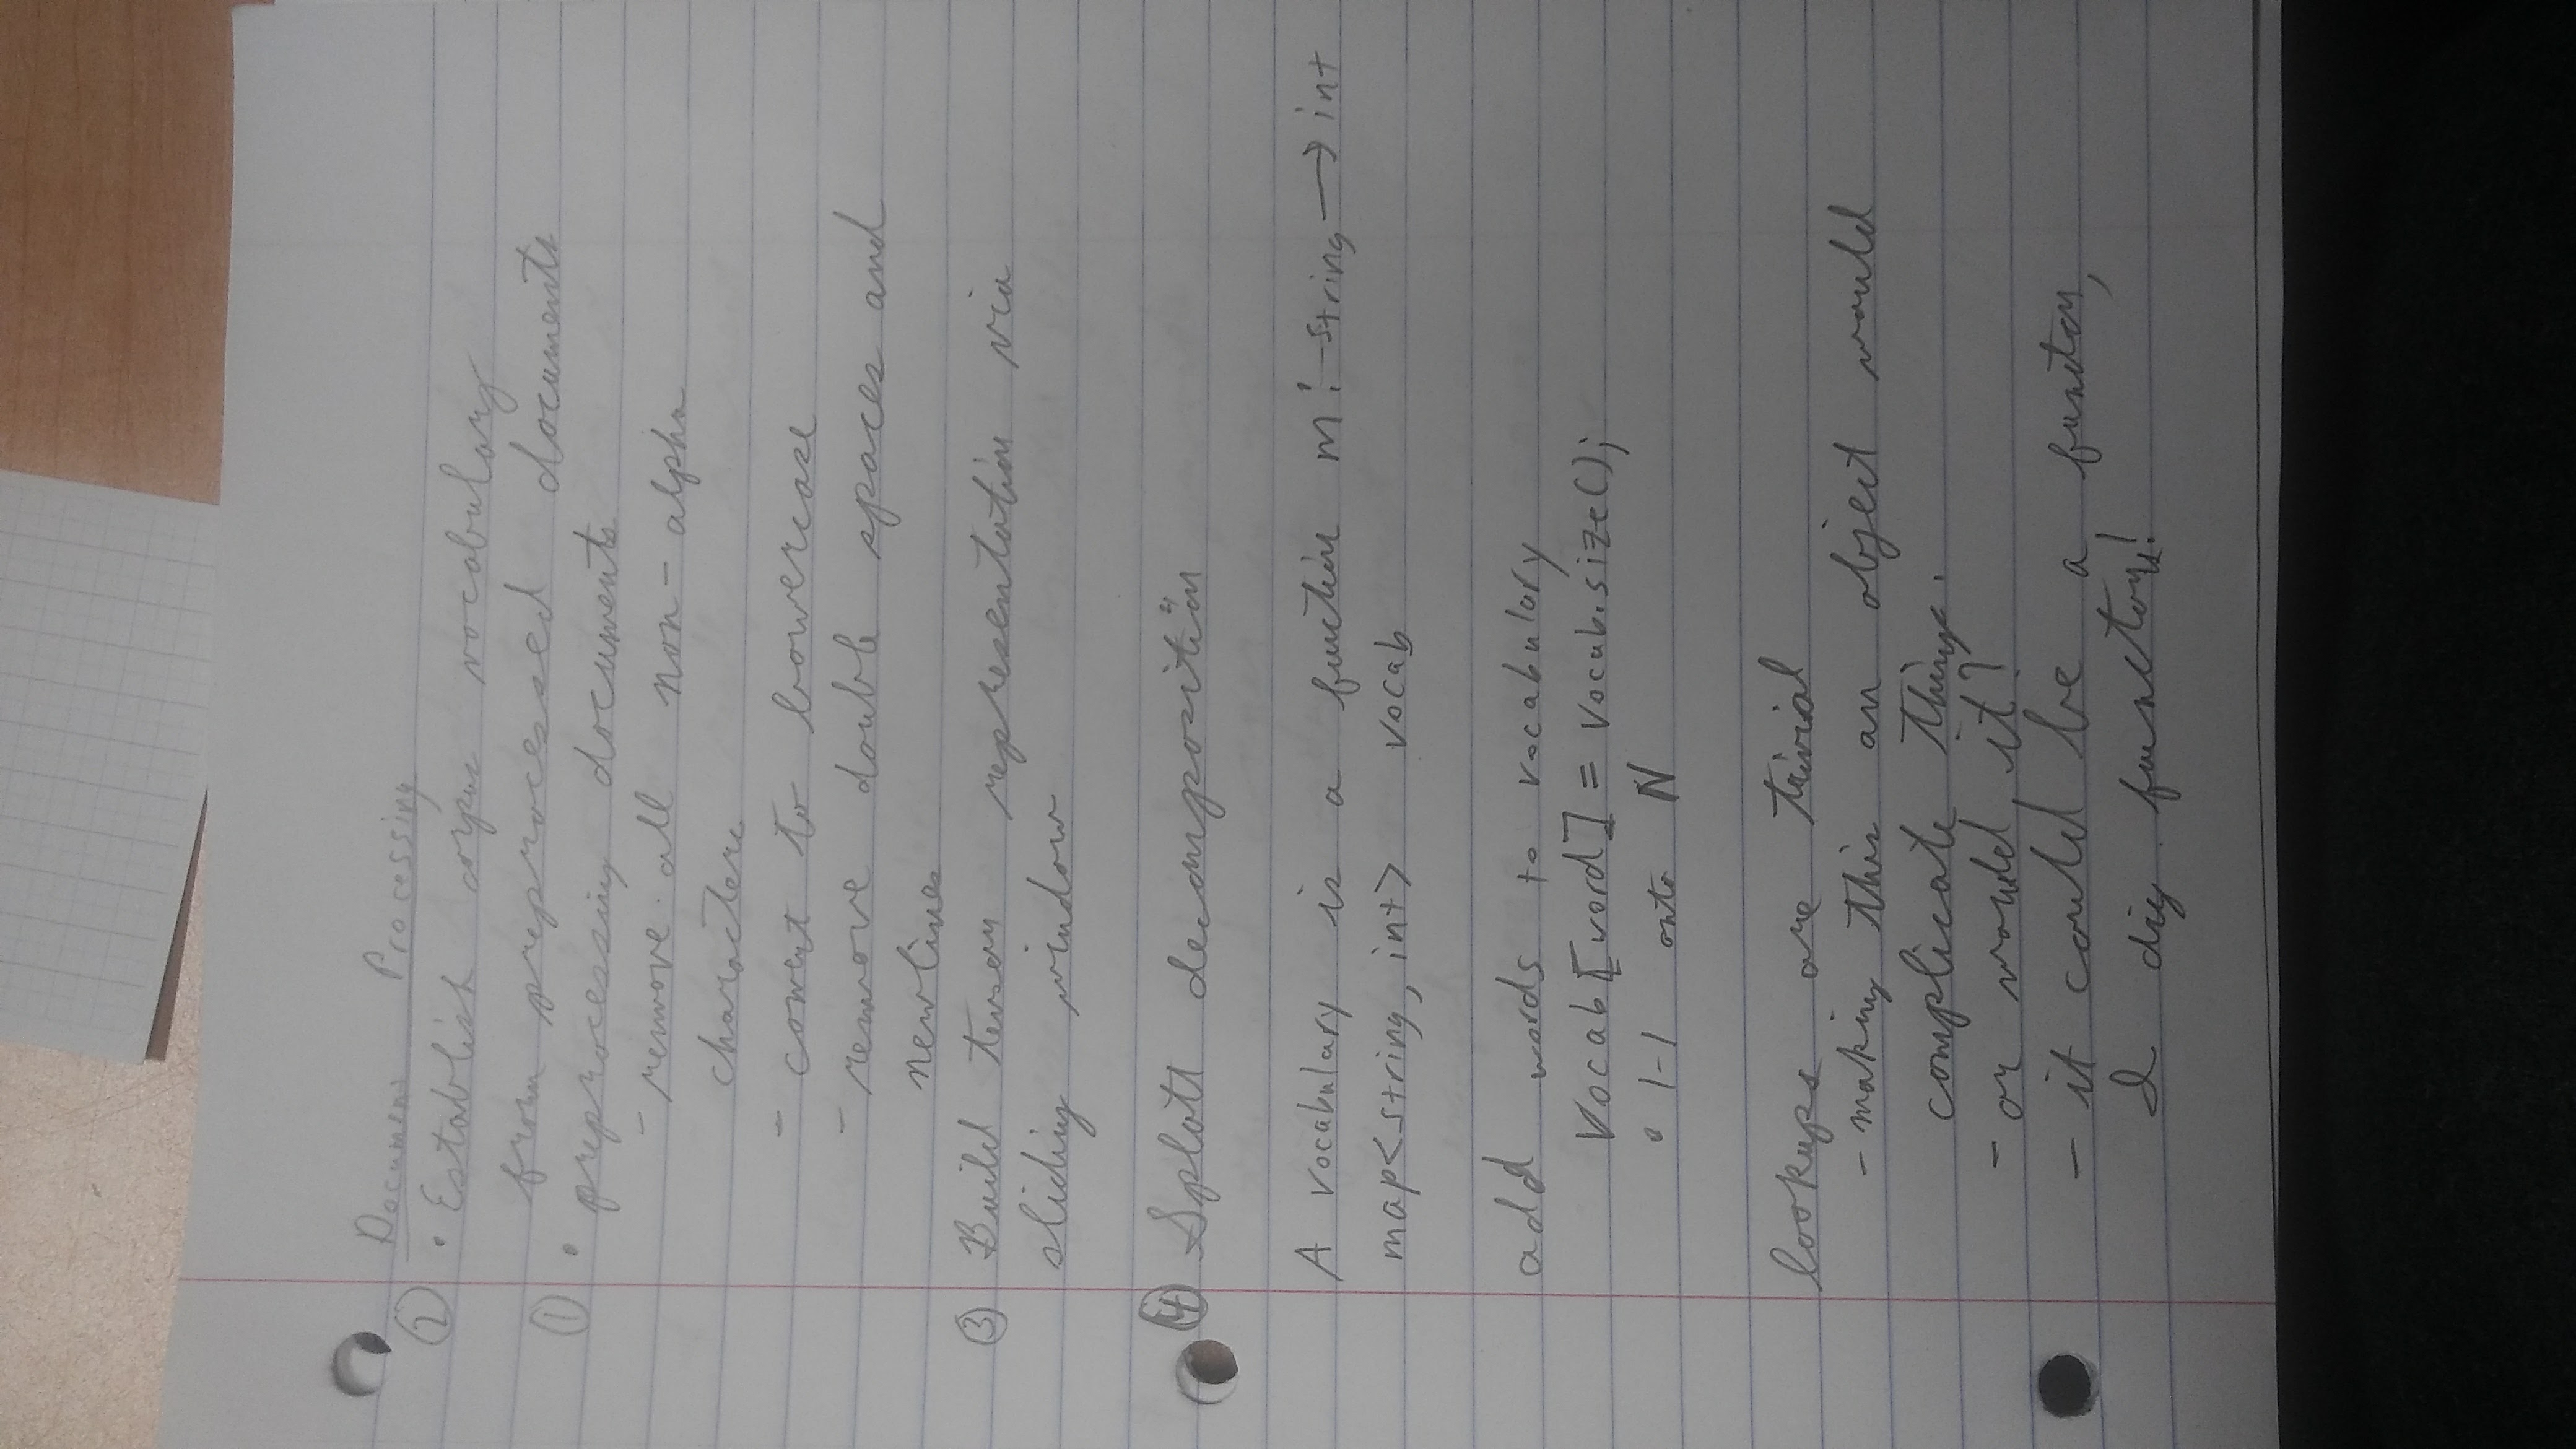 Document Processing
② • Establish corpus vocabulary
from preprocessed documents
① • preprocessing documents
- remove all non-alpha
characters
- convert to lowercase
- remove double spaces and
newlines
③ Build tensor representation via
sliding window
④ Splatt decomposition
A vocabulary is a function m: string → int
map<string, int> vocab
add words to vocabulary
Vocab[word] = vocab.size();
• 1-1 onto N
lookups are trivial
- making this an object would
complicate things.
- or would it?
- it could be a functor,
I dig functors!